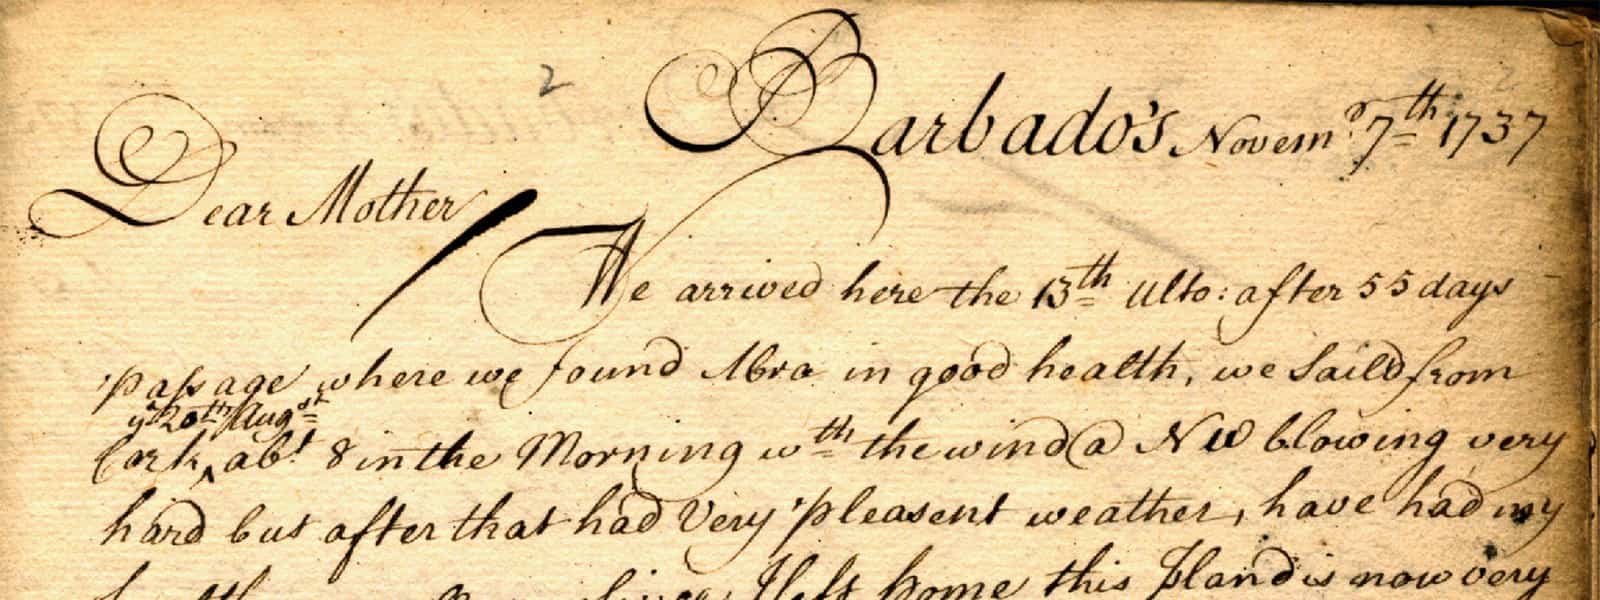 2
Barbado's Novemr 7th 1737
Dear Mother
We arrived here the 13th Ulto: after 55 days
passage where we found Abra in good health, we Saild from
ye 20th Augst
Cork abt 8 in the Morning wth the wind @ NW blowing very
hard but after that had Very pleasent weather, have had my
since I left home this Island is now very